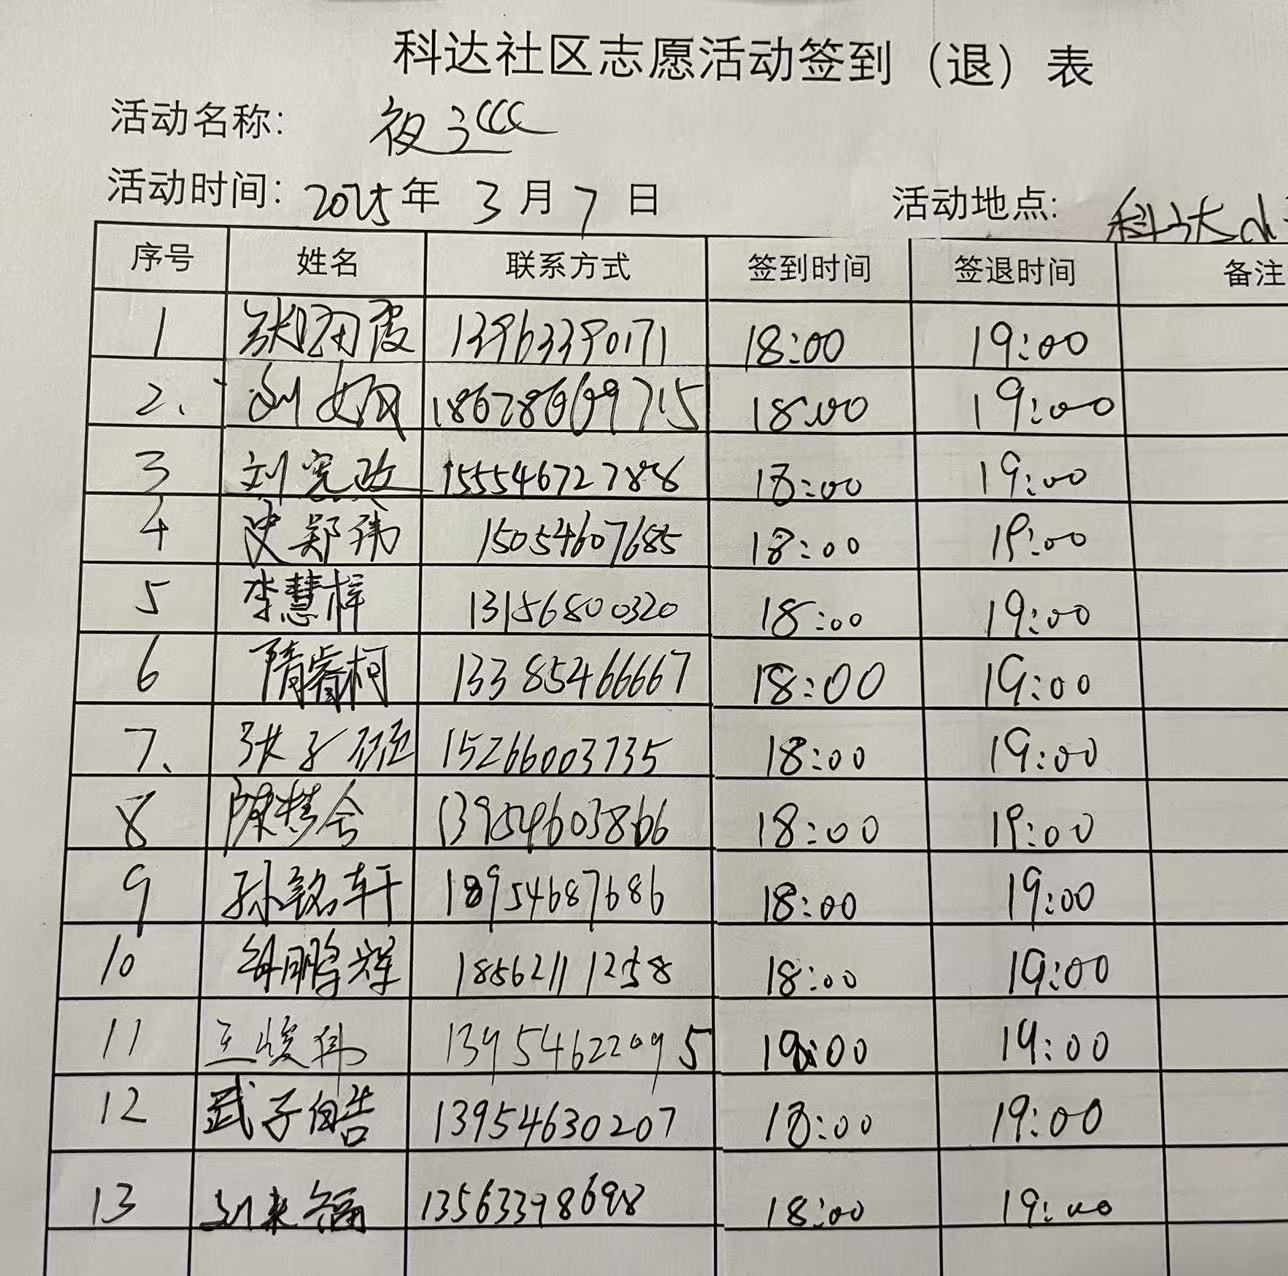 科达社区志愿活动签到（退）表
活动名称: 夜巡
活动时间: 2025年 3月 7日 活动地点: 科达小
序号 姓名 联系方式 签到时间 签退时间 备注
1 张 霞 13963390171 18:00 19:00
2、 刘 18678669715 18:00 19:00
3 刘宪政 15554672788 18:00 19:00
4 史郑玮 15054607685 18:00 19:00
5 李慧梓 13156800320 18:00 19:00
6 隋紫柯 13385466667 18:00 19:00
7、 张子 15266003735 18:00 19:00
8 陈梦含 13954603866 18:00 19:00
9 孙铭轩 18954687686 18:00 19:00
10 鹏辉 18562111258 18:00 19:00
11 王俊玮 13954622095 18:00 19:00
12 武子皓 13954630207 18:00 19:00
13 刘来福 13563398698 18:00 19:00